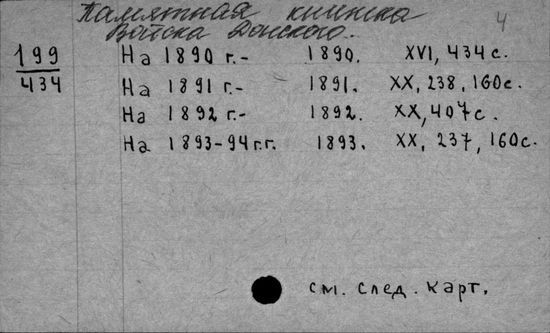 Памятная книжка 4
Войска Донского.
199 На 1890 г.- 1890. XVI, 434 с.
434 На 1891 г.- 1891. XX, 238, 160 с.
На 1892 г.- 1892. XX, 407 с.
На 1893-94 г.г. 1893. XX, 237, 160 с.
см. след. карт.